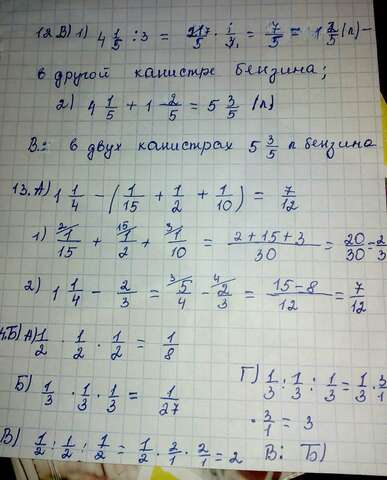 12. В) 1) 4 1/5 : 3 = 21/5 · 1/3 = 7/5 = 1 2/5 (л) -
в другой канистре бензина;
2) 4 1/5 + 1 2/5 = 5 3/5 (л)
В.: в двух канистрах 5 3/5 л бензина
13. А) 1 1/4 - (1/15 + 1/2 + 1/10) = 7/12
1) 2/ 1/15 + 15/ 1/2 + 3/ 1/10 = 2+15+3/30 = 20/30 = 2/3
2) 1 1/4 - 2/3 = 3/ 5/4 - 4/ 2/3 = 15-8/12 = 7/12
4. Б) А) 1/2 · 1/2 · 1/2 = 1/8
Б) 1/3 · 1/3 · 1/3 = 1/27
В) 1/2 : 1/2 : 1/2 = 1/2 · 2/1 · 2/1 = 2
Г) 1/3 : 1/3 : 1/3 = 1/3 · 3/1
· 3/1 = 3
В: Б)